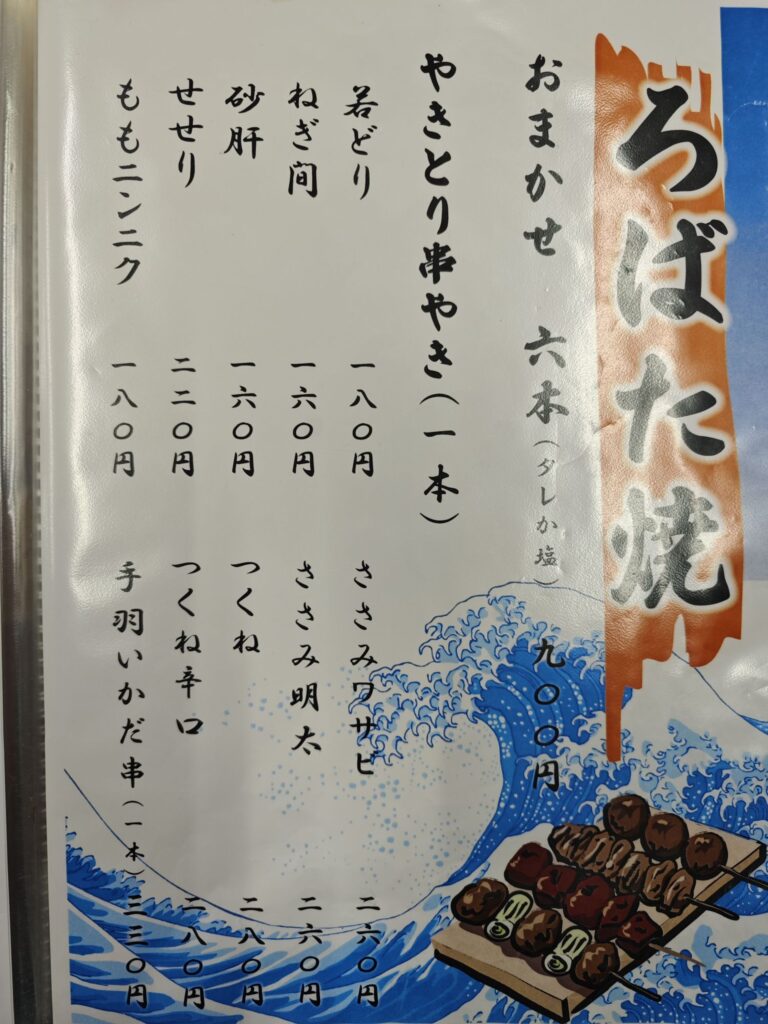 ろばた焼
おまかせ 六本（タレか塩） 九〇〇円
やきとり串やき（一本）
若どり 一八〇円
ささみワサビ 二六〇円
ねぎ間 一六〇円
ささみ明太 二六〇円
砂肝 一六〇円
つくね 二八〇円
せせり 二二〇円
つくね辛口 二八〇円
ももニンニク 一八〇円
手羽いかだ串（一本） 三三〇円